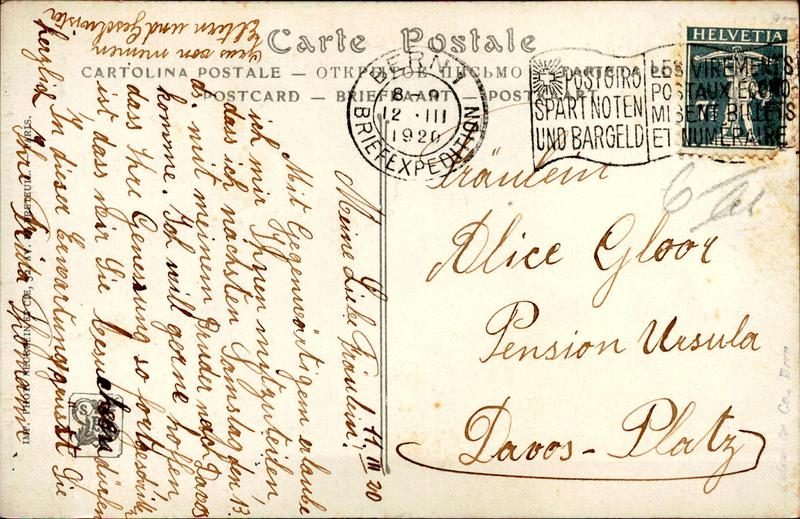 Carte Postale
CARTOLINA POSTALE — ОТКРЫТОЕ ПИСЬМО
POSTCARD — BRIEFKAART
BERN 1
8-9
12 · III
1920
BRIEFEXPEDITION
POSTGIRO
SPART NOTEN
UND BARGELD
LES VIREMENTS
POSTAUX ÉCONO
MISENT BILLETS
ET NUMÉRAIRE
HELVETIA
Fräulein
Alice Gloor
Pension Ursula
Davos-Platz
11 III 20
Meine Liebe Fräulein!
Mit Gegenwärtigem erlaube
ich mir Ihnen mitzuteilen,
dass ich nächsten Samstag den 13.
ds. mit meinem Bruder nach Davos
komme. Ich will gerne hoffen,
dass Ihre Genesung so fortschritt
ist dass wir Sie besuchen dürfen
In dieser Erwartung grüsst Sie
herzlich
Ihre
Grus von meinen
Eltern und Geschwister